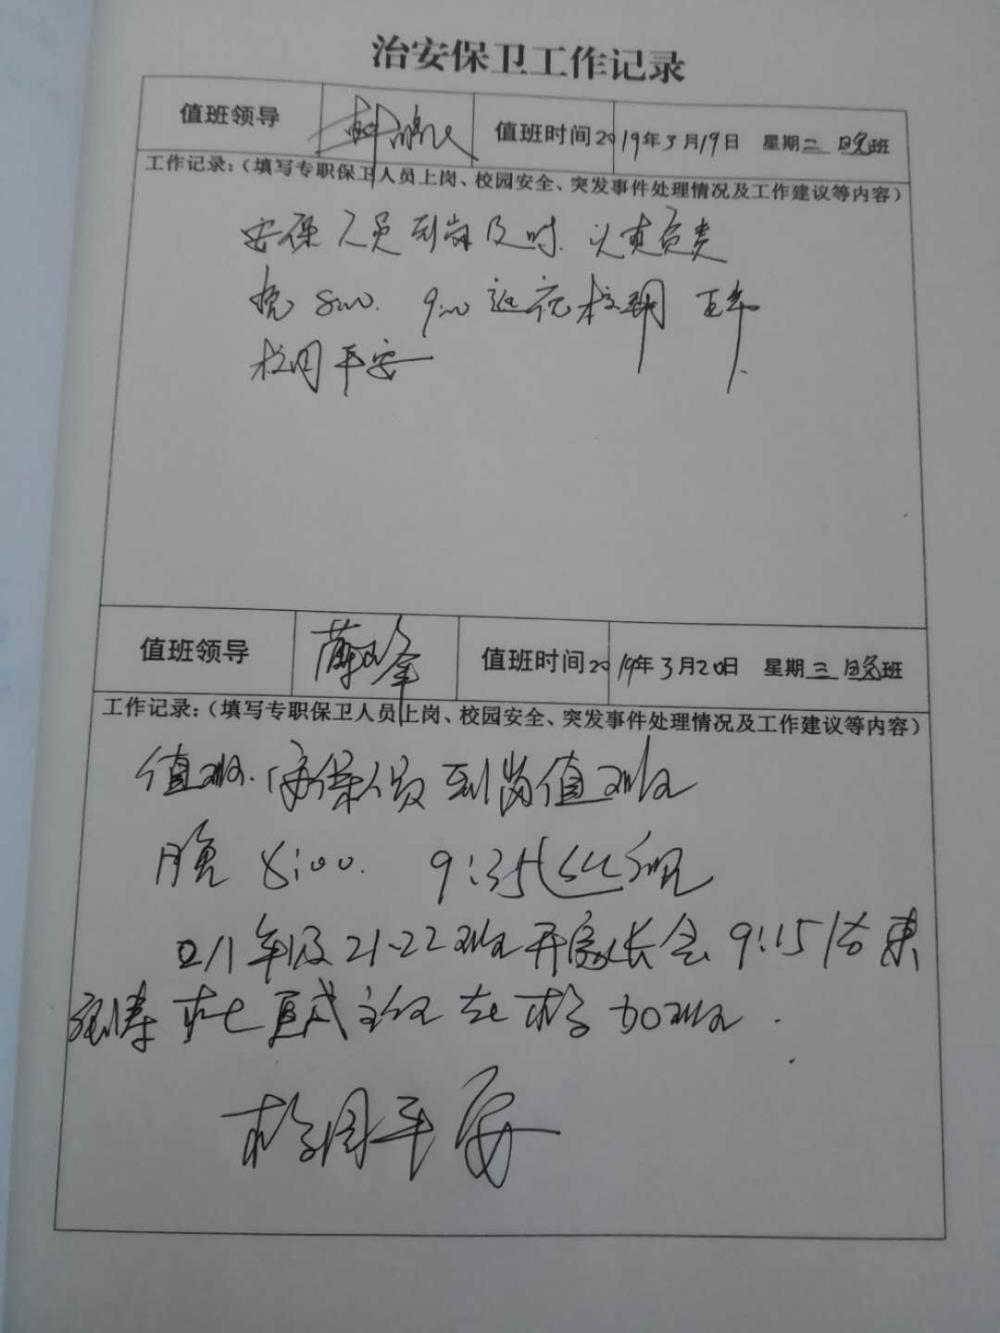 治安保卫工作记录
值班领导 值班时间2019年3月19日 星期二 晚班
工作记录:(填写专职保卫人员上岗、校园安全、突发事件处理情况及工作建议等内容)
安保人员到岗及时. 认真负责
晚8:00. 9:00 巡视校园 正常
校园平安
值班领导 薛双峰 值班时间2019年3月20日 星期三 晚班
工作记录:(填写专职保卫人员上岗、校园安全、突发事件处理情况及工作建议等内容)
值班.安保人员到岗值班
晚 8:00. 9:35巡视
年级21-22班开家长会 9:15结束
主任在校加班.
校园平安